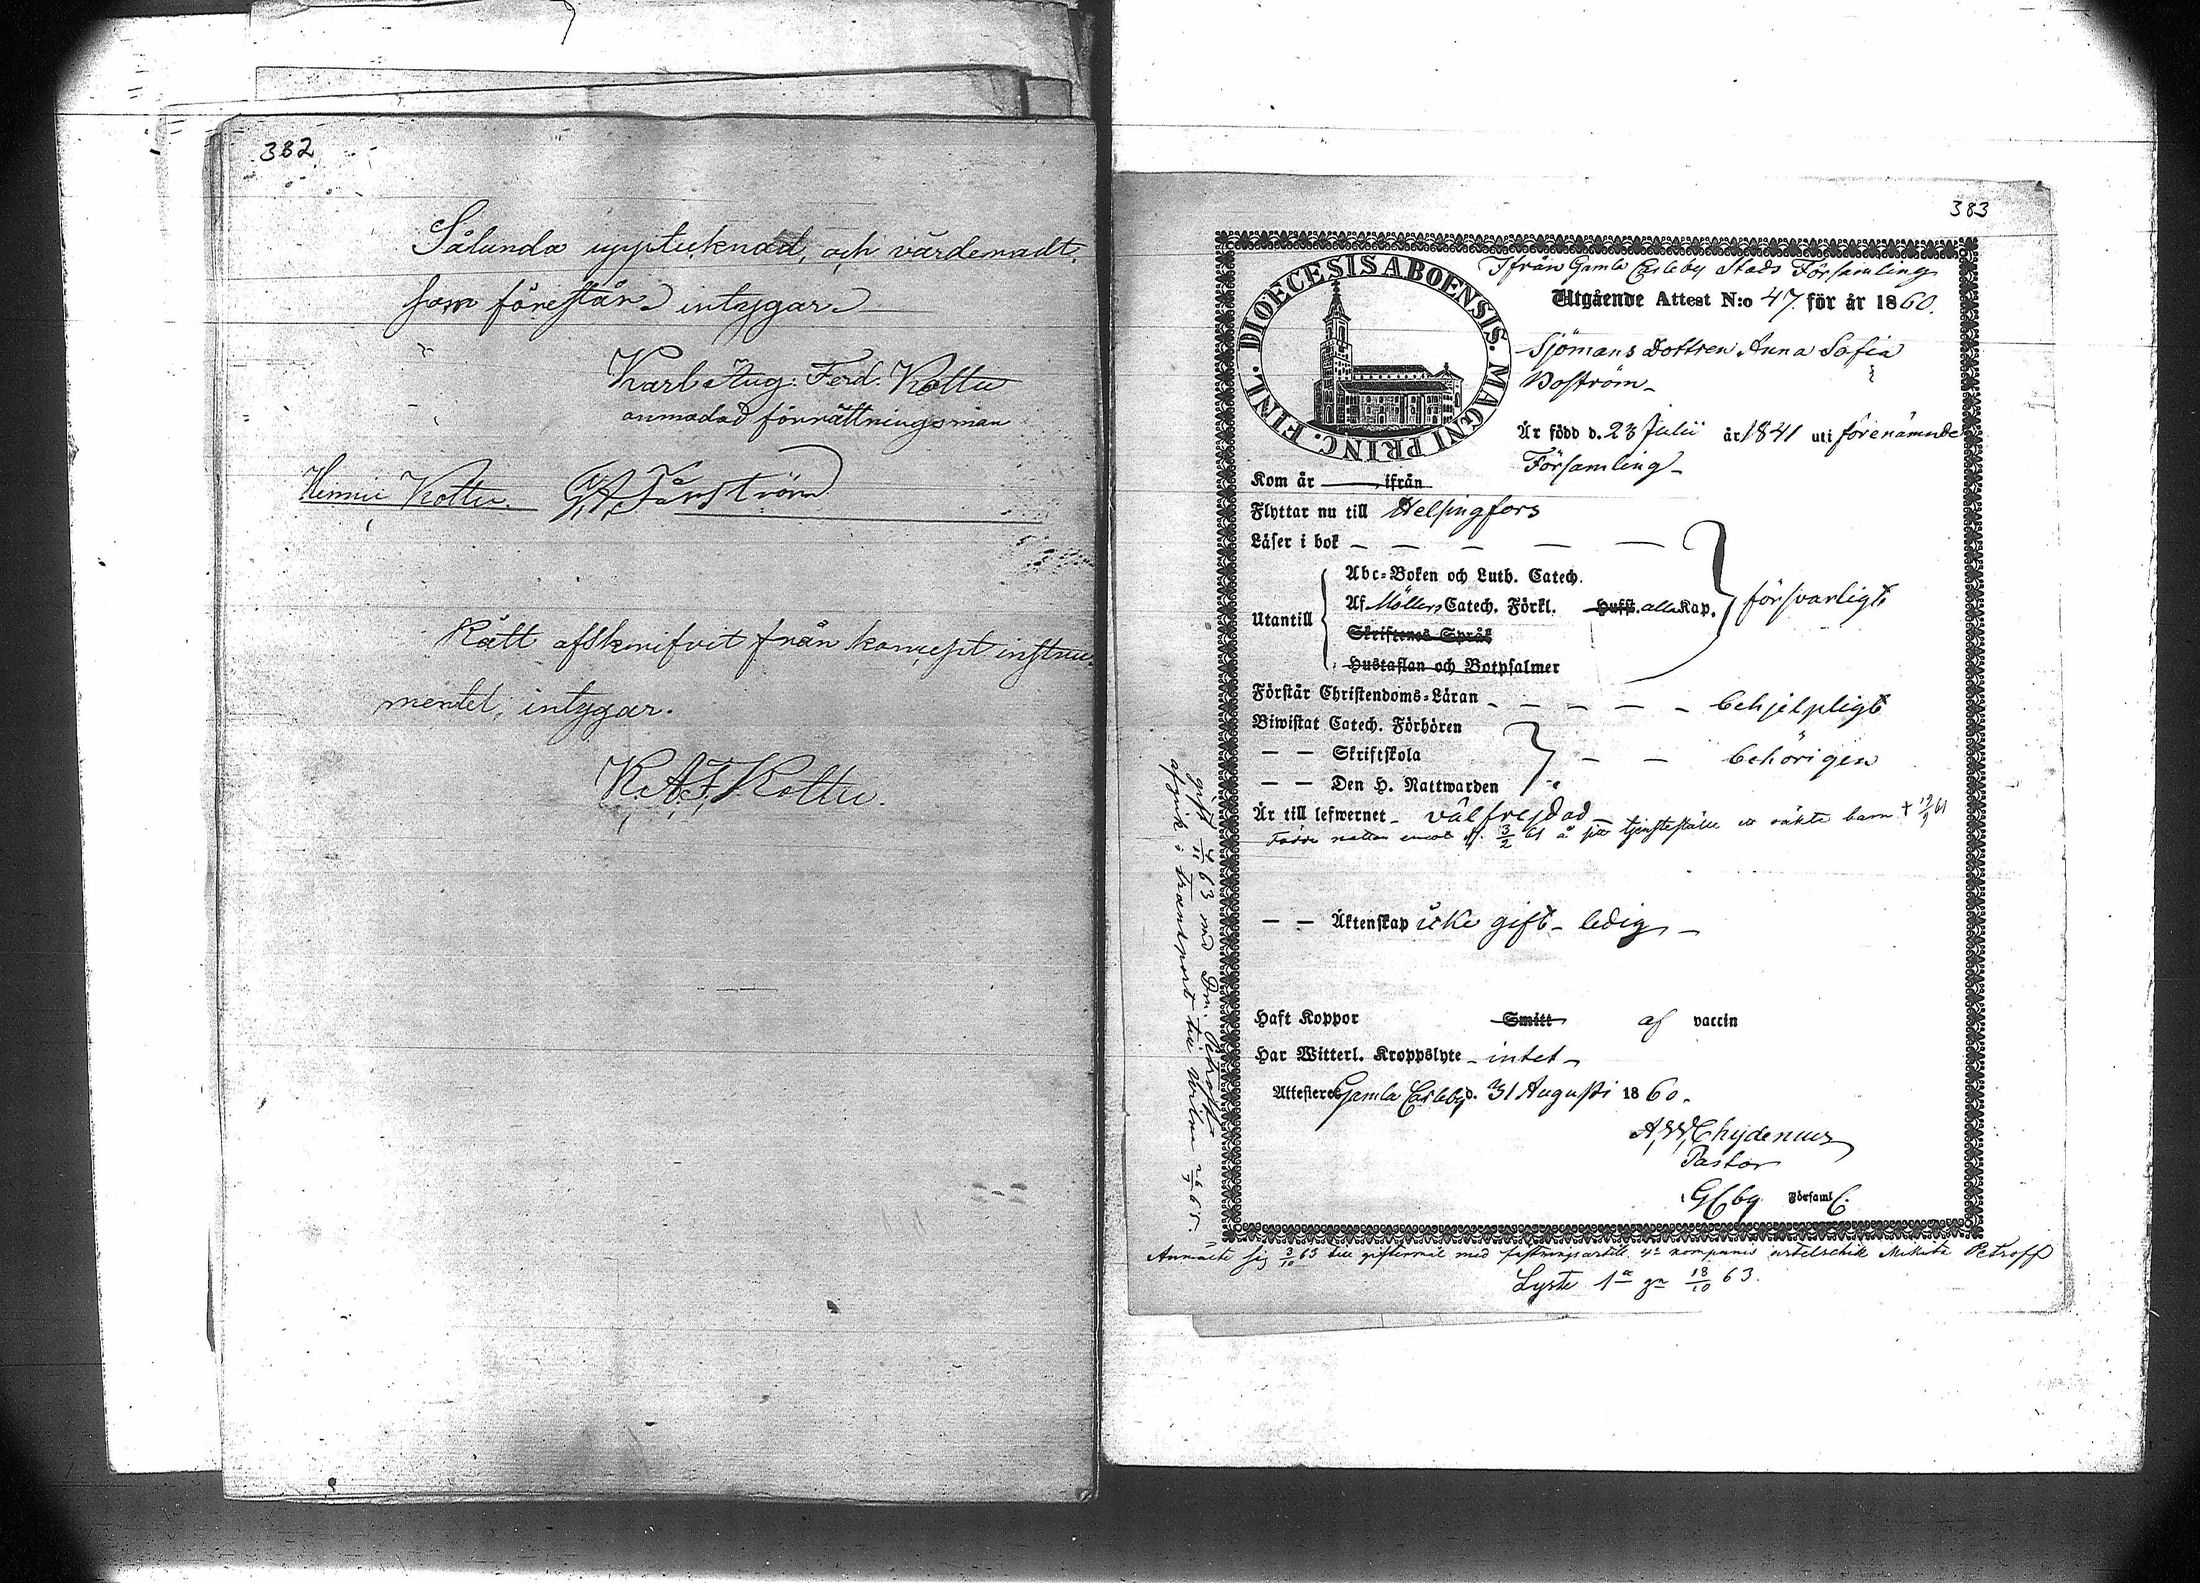 382
Sålunda upptecknad, och värderadt,
som förestår intygar
Karl Aug. Ferd. Kottu
anmodad förrättningsman
Hennie Kottu. G. A. Tårström
Rätt afskrifvit från koncept instru-
mentet, intygar.
K. A. F. Kottu.
383
DIOECESIS ABOENSIS. MAGNI PRINC. FINL.
Ifrån Gamla Carleby Stads Församling
Utgående Attest N:o 47 för år 1860.
Sjömans Dottren Anna Sofia
Boström
Är född d. 23 Julii år 1841 uti förenämnde
Församling
Kom år — ifrån
Flyttar nu till Helsingfors
Läser i bok — — — — —
Utantill
Abc-Boken och Luth. Catech.
Af Möllers Catech. Förkl. Hufst. alla Kap. försvarligt
Skriftenes Språk
Hustaflan och Botpsalmer
Förstår Christendoms-Läran - - - - - behjelpligt
Biwistat Catech. Förhören
— — Skriftskola — — behörigen
— — Den H. Nattwarden
Är till lefwernet välfrejdad
Födde natten emot d. 3/2 61 å sitt tjenstställe ett oäkta barn † 19/9 61
— — Äktenskap icke gift - ledig
Haft Koppor Smitt af vaccin
Har Witterl. Kroppslyte - intet -
Attesteras Gamla Carleby d. 31 Augusti 1860.
A. W. Chydenius
Pastor
i GCby Församl.
gift 4/11 63 med Petroff
afgick i transport till 26/7 65.
Anmälte sig 3/10 63 till giftermål med fästningsartill. 4de kompanie artelschik Nikita Petroff
Lyste 1a gn 18/10 63.